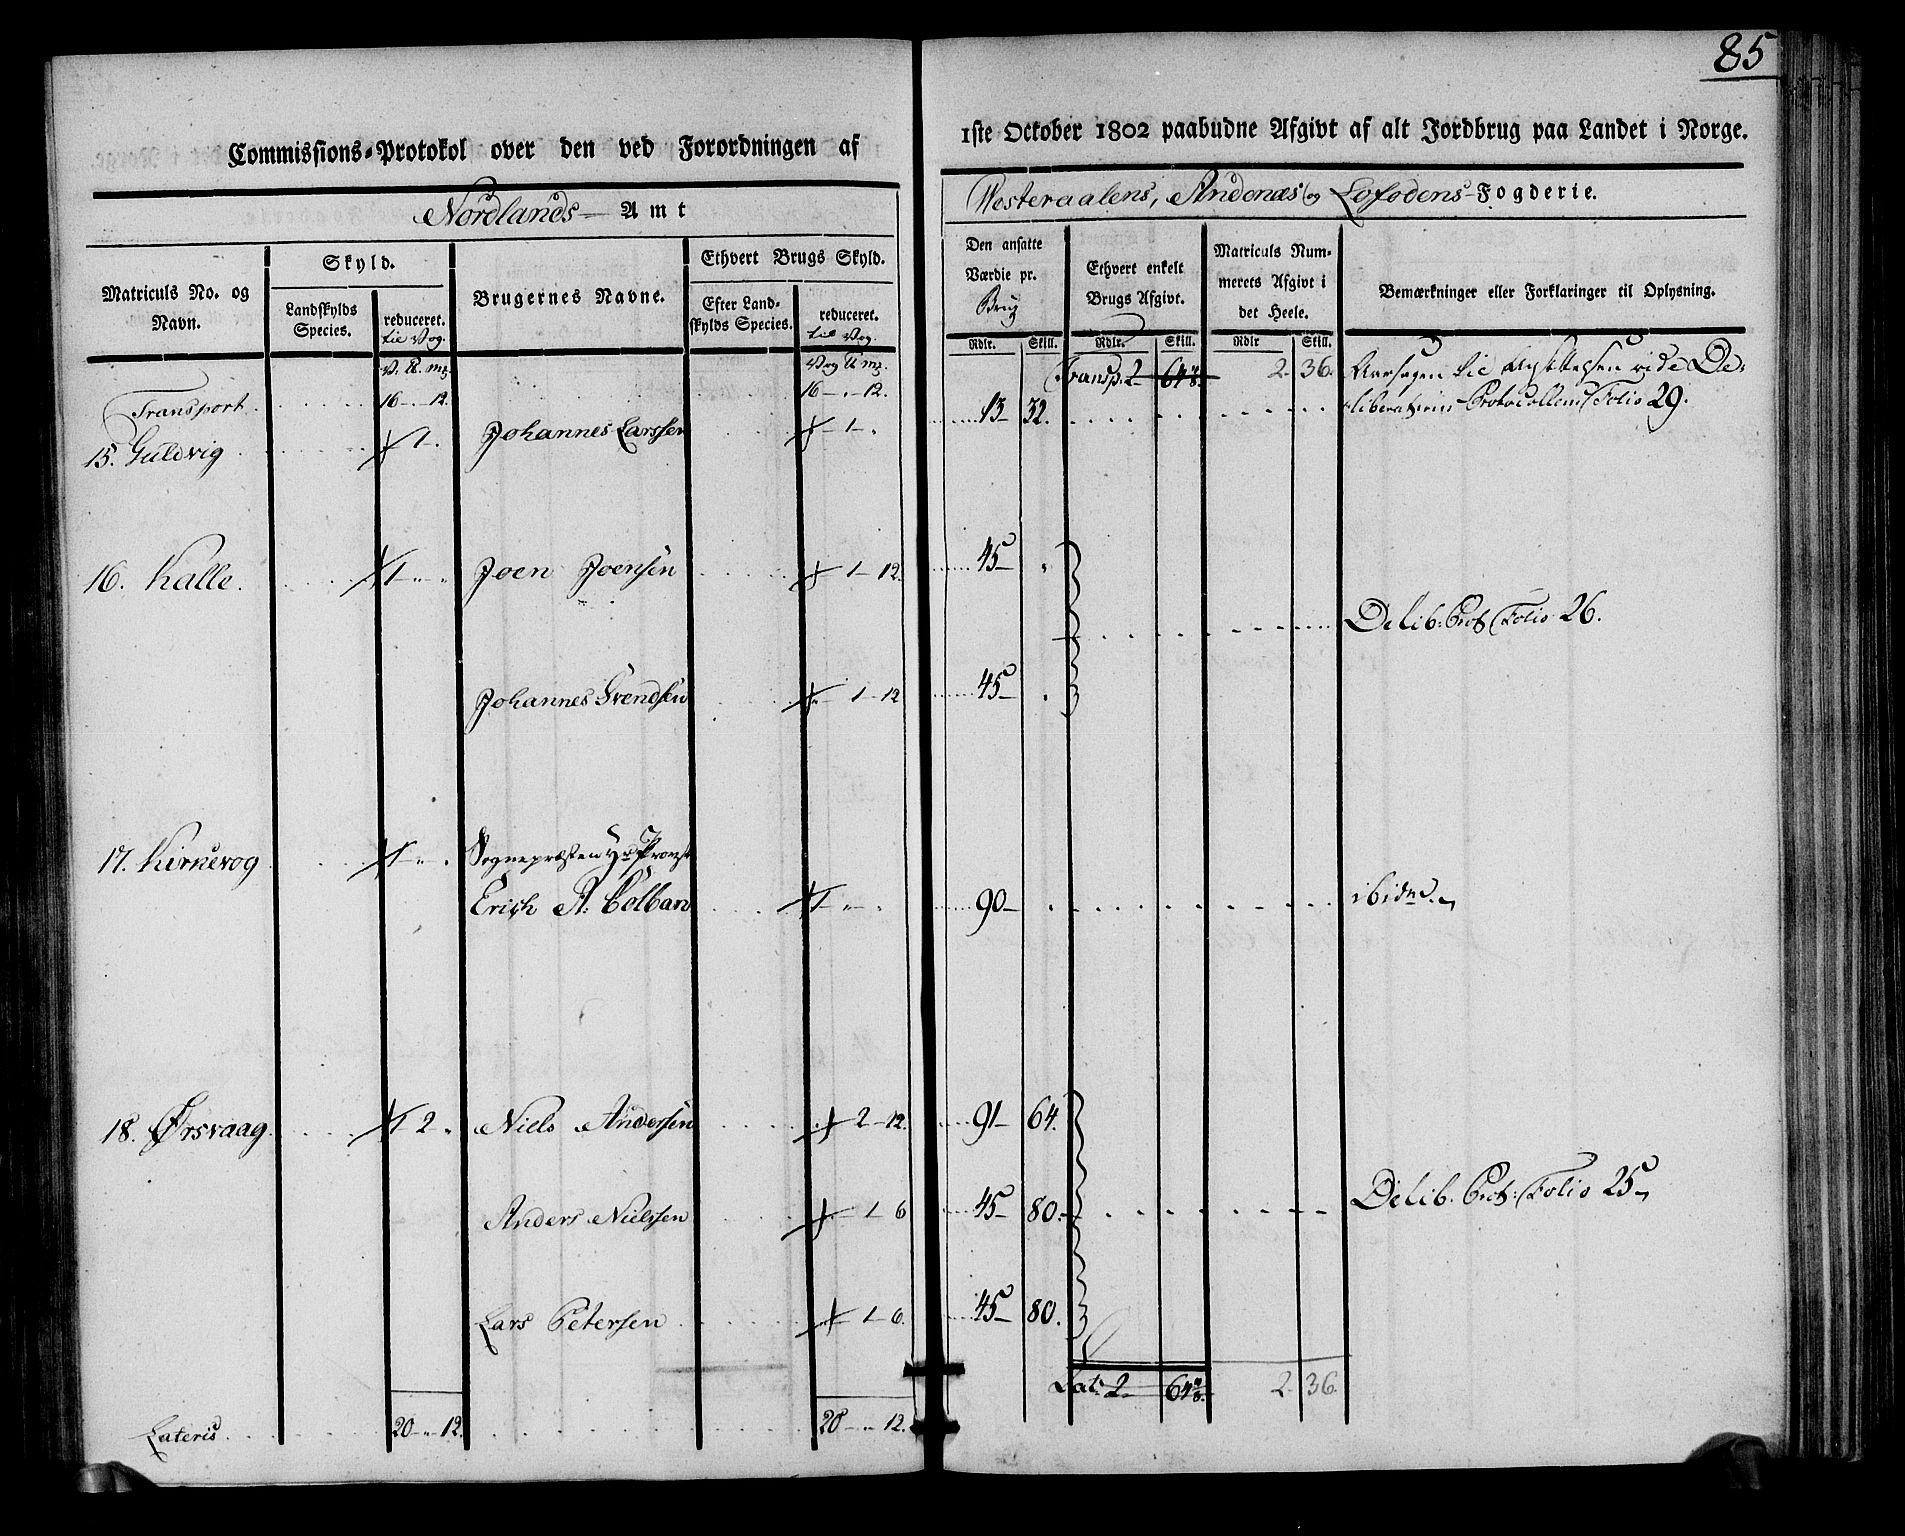 85
Commissions-Protokol over den ved Forordningen af
1ste October 1802 paabudne Afgivt af alt Jordbrug paa Landet i Norge.
Nordlands Amt
Westeraalens, Andenæs og Lofodens-Fogderie.
Matriculs No. og Navn.
Skyld.
Landskylds Species.
reduceret. til Vog.
Brugernes Navne.
Ethvert Brugs Skyld.
Efter Landskylds Species.
reduceret. til Vog.
Den ansatte Værdie pr. Brug
Ethvert enkelt Brugs Afgivt.
Matriculs Nummerets Afgivt i det Heele.
Bemærkninger eller Forklaringer til Oplysning.
Rdlr. Skill. Rdlr. Skill. Rdlr Skill.
Transport 16 - 12. 16 - 12. Transp. 2 2. 36.
15. Guldvig 1. Johannes Larssen 1 13 32. Aarsagen til vide De-
liberations Protocollens Folio 29.
16. Kalle. 1 Joen Joensen 1 - 12. 45
Delib: Prot Folio 26.
Johannes Svendsen 1 - 12 45
17. Kirkevog 1 Sognepræsten Hr Provst
Erich A: Colban 1 90 ibidm
18. Ørsvaag 2 Niels Andersen 2 - 12. 91 64.
Anders Nielssen 1 - 6 45 80. Delib. Prot: Folio 25
Lars Petersen 1 - 6. 45 80.
Lat: 2 2. 36.
Lateris 20 - 12. 20 - 12.